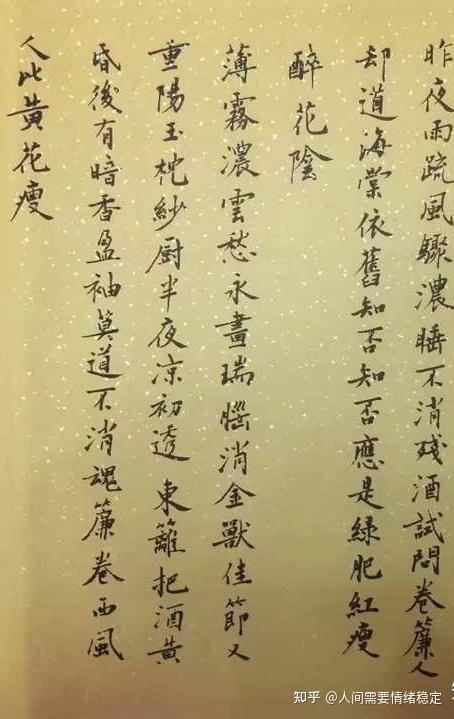 昨夜雨疏風驟濃睡不消殘酒試問卷簾人
却道海棠依舊知否知否應是綠肥紅瘦
醉花陰
薄霧濃雲愁永晝瑞腦消金獸佳節又
重陽玉枕紗厨半夜凉初透東籬把酒黃
昏後有暗香盈袖莫道不消魂簾卷西風
人比黃花瘦
知乎 @人间需要情绪稳定